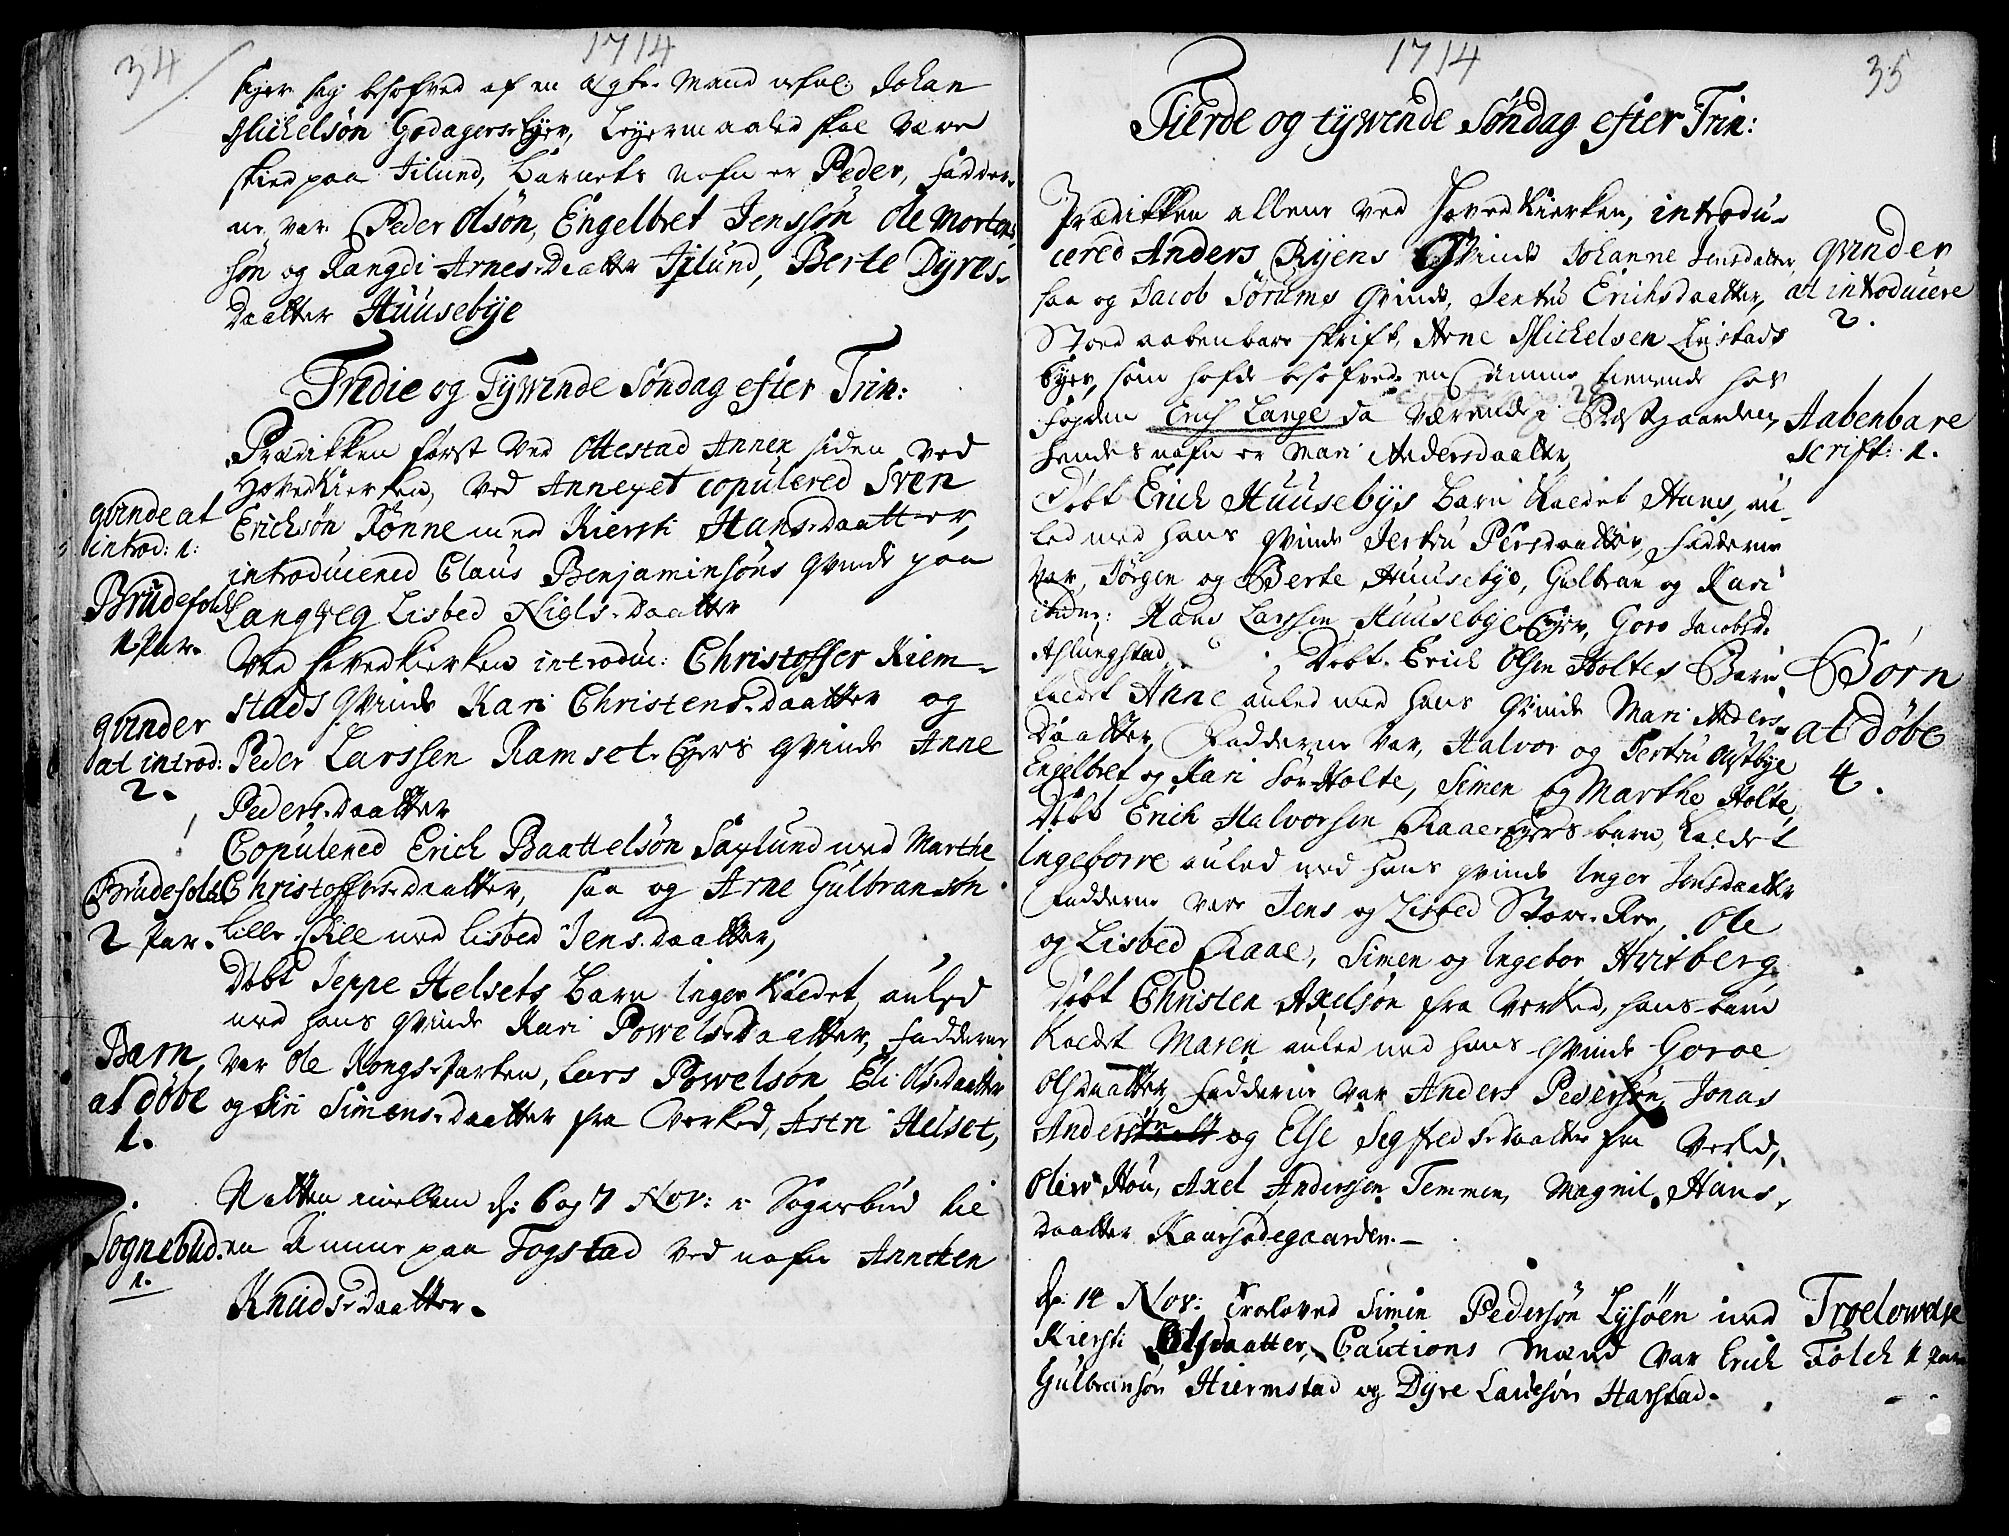 34
1714
siger sig besofved af en ægte Mand nafnl: Johan
Michelsøn Godagers Eyer, Leyermaaled skal være
skied paa Jilund, Barnets nafn er Peder, Fadder-
ne var Peder Olsøn, Engelbret Jenssøn Ole Morten-
søn og Rangdi Arnes-Daatter Jilund, Berte Dyres-
Daatter Huusebye
Tredie og Tywende Søndag efter Trin:
Prædikken først ved Ottestad Annex siden ved
HovedKierken, ved Annexet copulered Sven
Erichsøn Rønne med Kiersti Hans-Daatter,
introducered Claus Benjaminsøns Qvinde paa
Langveg Lisbed Niels-Daatter
Ved Hovedkierken introduc: Christoffer Kiem-
stads Qvinde Kari Christens-Daatter og
Peder Larssen Ramset-Eyers Qvinde Anne
Peders-Daatter
Copulered Erich Baattelsøn Saxlund med Marthe
Christoffers-daatter, saa og Arne Gulbransøn
Lille-Ree med Lisbed Jens-Daatter,
Døbt Jeppe Helsets Barn Inger kaldet, auled
med hans Qvinde Kari Powels-Daatter, Fadderne
var Ole Kongs-Parten, Lars Powelsøn Eli Ols-Daatter
og Siri Simens-Daatter fra Verked, Astri Helset,
Natten mellem d: 6 og 7 Nov: i Sognebud til
en Amme paa Fogstad ved nafn Anneken
Knuds-Daatter.
qvinde at
introd: 1:
Brudefolk
1 Par.
qvinder
at introd:
2.
Brudefolk
2 Par.
Barn
at døbe
1.
Sognebud.
1.
1714
35
Fierde og tywende Søndag efter Trin:
Prædikken allene ved HovedKierken, introdu-
cered Anders Ryens Qvinde Johanne Jensdatter,
saa og Jacob Sørums Qvinde, Jertru Erichsdaatter,
Stoed aabenbare skrift, Arne Michelsen Liustads
Eyer, som hafde besofved en Amme tienende hos
Fogden Erich Lange da værende i Præstgaarden,
hendes nafn er Mari Andersdaatter,
Døbt Erich Huusebys Barn kaldet Hans, au-
led med hans Qvinde Jertru Persdaatter, Fadderne
var, Jørgen og Berte Huusebye, Gulbran og Kari
ibidm: Hans Larssen Huusebye-Eyer, Goro Jacobsd.
Aslungstad, Døbt Erich Olsen Holtes Barn
kaldet Anne auled med hans Qvinde Mari Anders-
Daatter, Fadderne var, Halvor og Jertru Østbye
Engelbret og Kari Sør-Holte, Simen og Marthe Holte,
Døbt Erich Halvorsen Raae-Eyers barn, kaldet
Ingeborre auled med hans qvinde Inger Jensdaatter
Fadderne var Jens og Lisbed Store-Ree, Ole
og Lisbed Raae, Simen og Ingebor Hvitberg
Døbt Christen Axelsøn fra Verked, hans barn
kaldet Maren auled med hans Qvinde Goroe
Olsdaatter, Fadderne var Anders Pedersøn, Jonas
Anders og Else Segfreds-daatter fra Verked,
Oliw Hou, Axel Anderssen Temmen, Magnil Hans-
daatter Kaarsødegaarden.
d: 14 Nov: Troloved Simen Pedersøn Lysøen med
Kiersti Olsdaatter, Cautions Mænd var Erich
Gulbransøn Hiermstad og Dyre Lauesøn Harstad.
qvinder
at introducere
2.
Aabenbare
Scrift: 1.
Børn
at døbe
4.
Troelowelse
Folck 1 Par